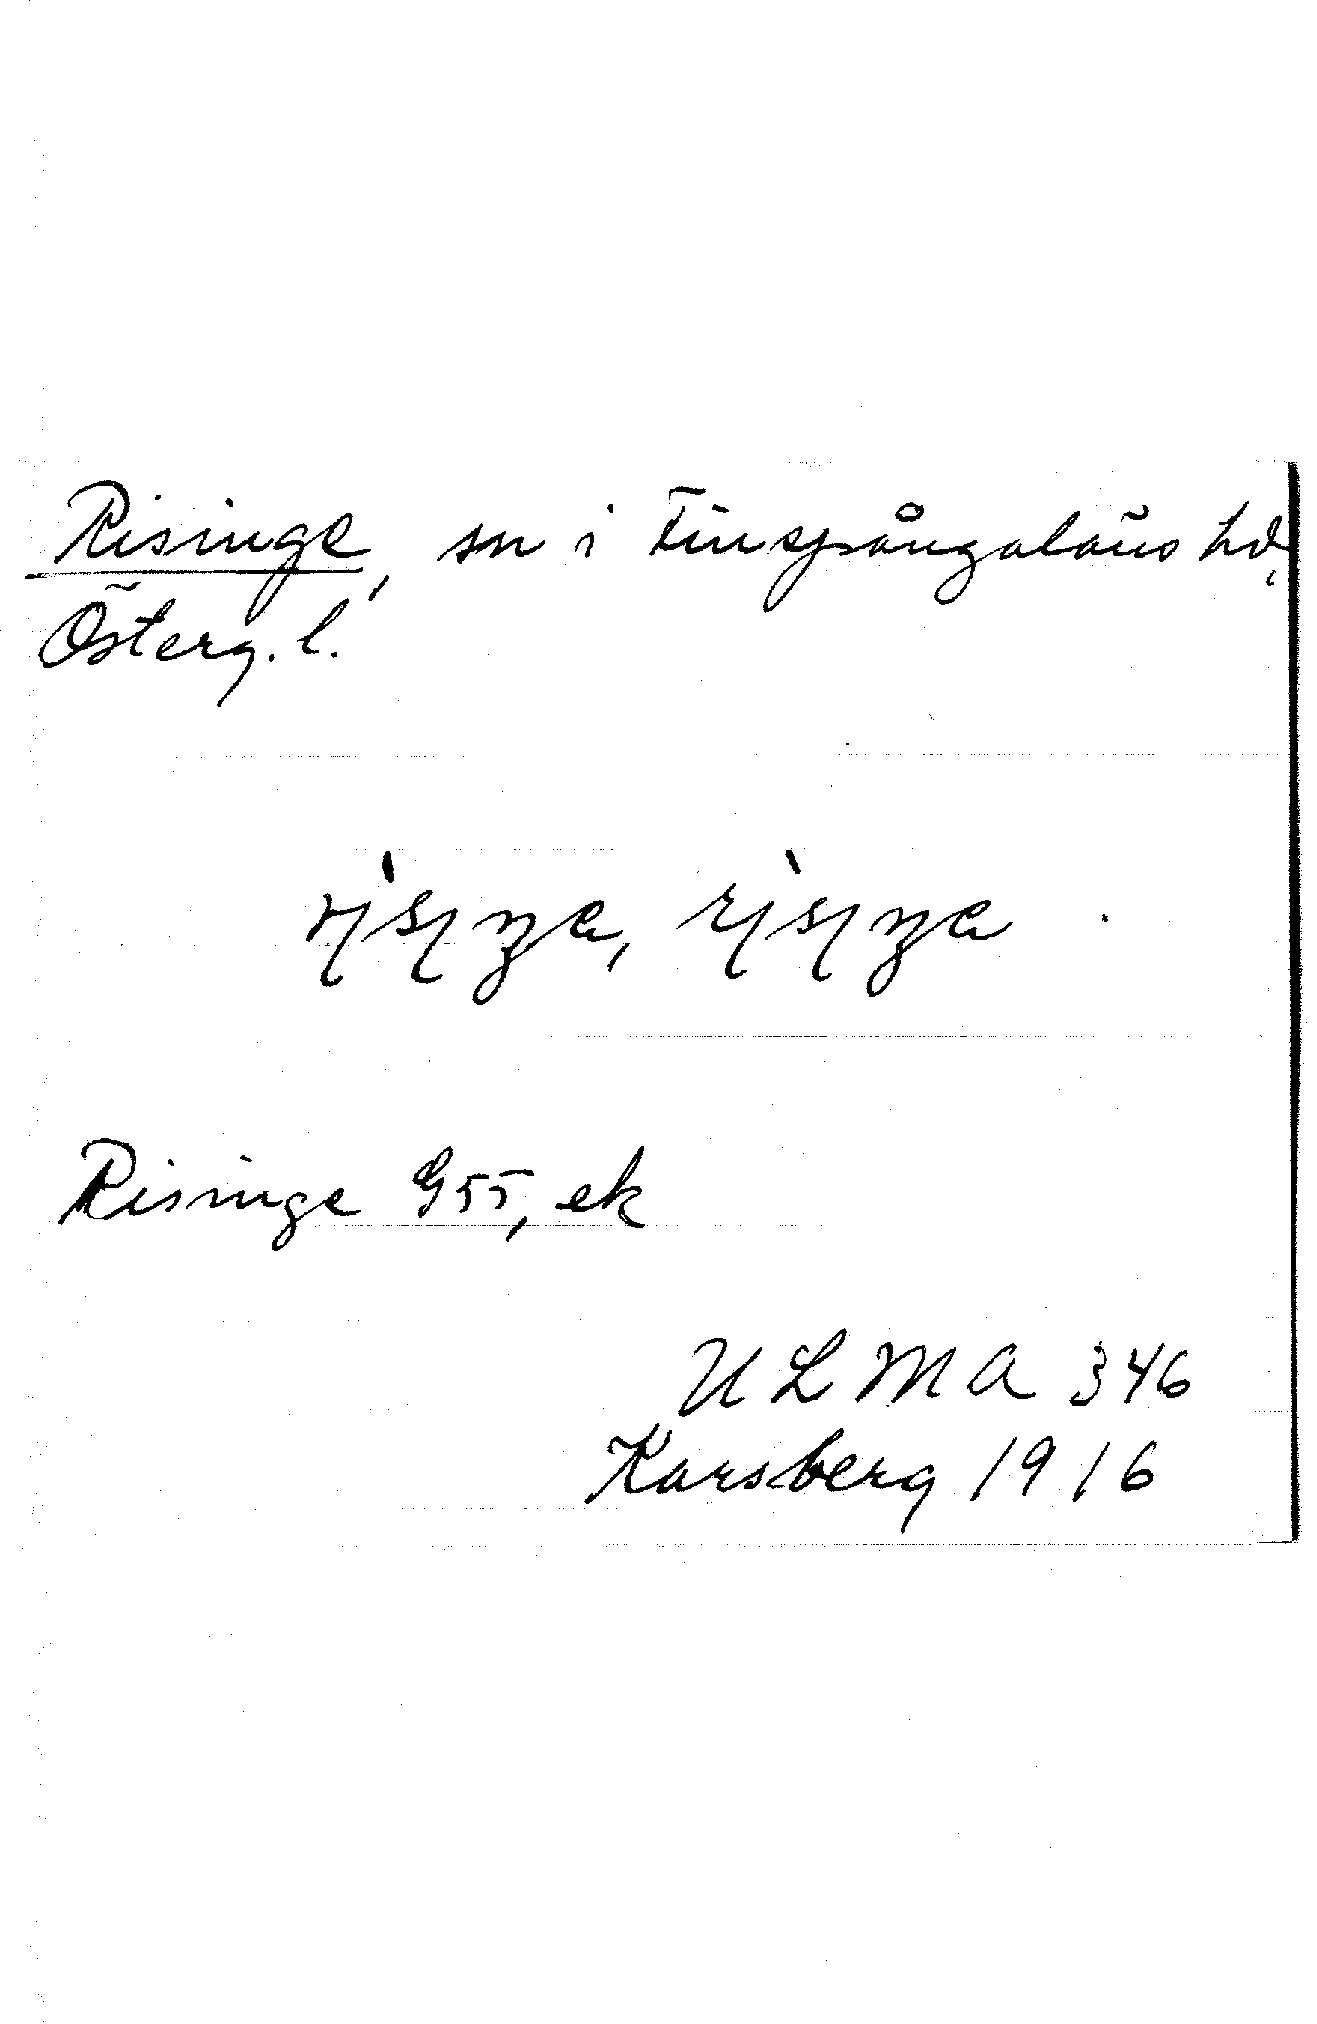 Risinge, sn i Finspångaläns hd,
Österg. l.
Risinge G55, ek
ULMA 346
Karsberg 1916